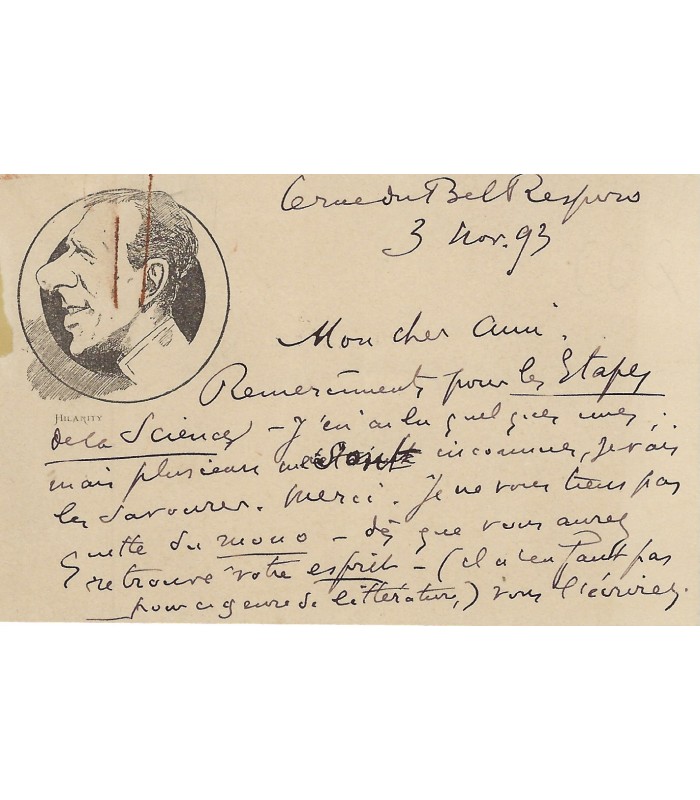 Ce rue du Bel Respiro
3 Nov. 93
Mon cher Ami.
Remerciements pour les Etapes
HILARITY
de la Science – J'en ai lu quelques unes,
mais plusieurs me sont inconnues, je vais
les savourer. Merci. Je ne vous tiens pas
quitte du mono – dès que vous aurez
retrouvé votre esprit – (il n'en faut pas
pour ce genre de littérature,) vous l'écrirez.